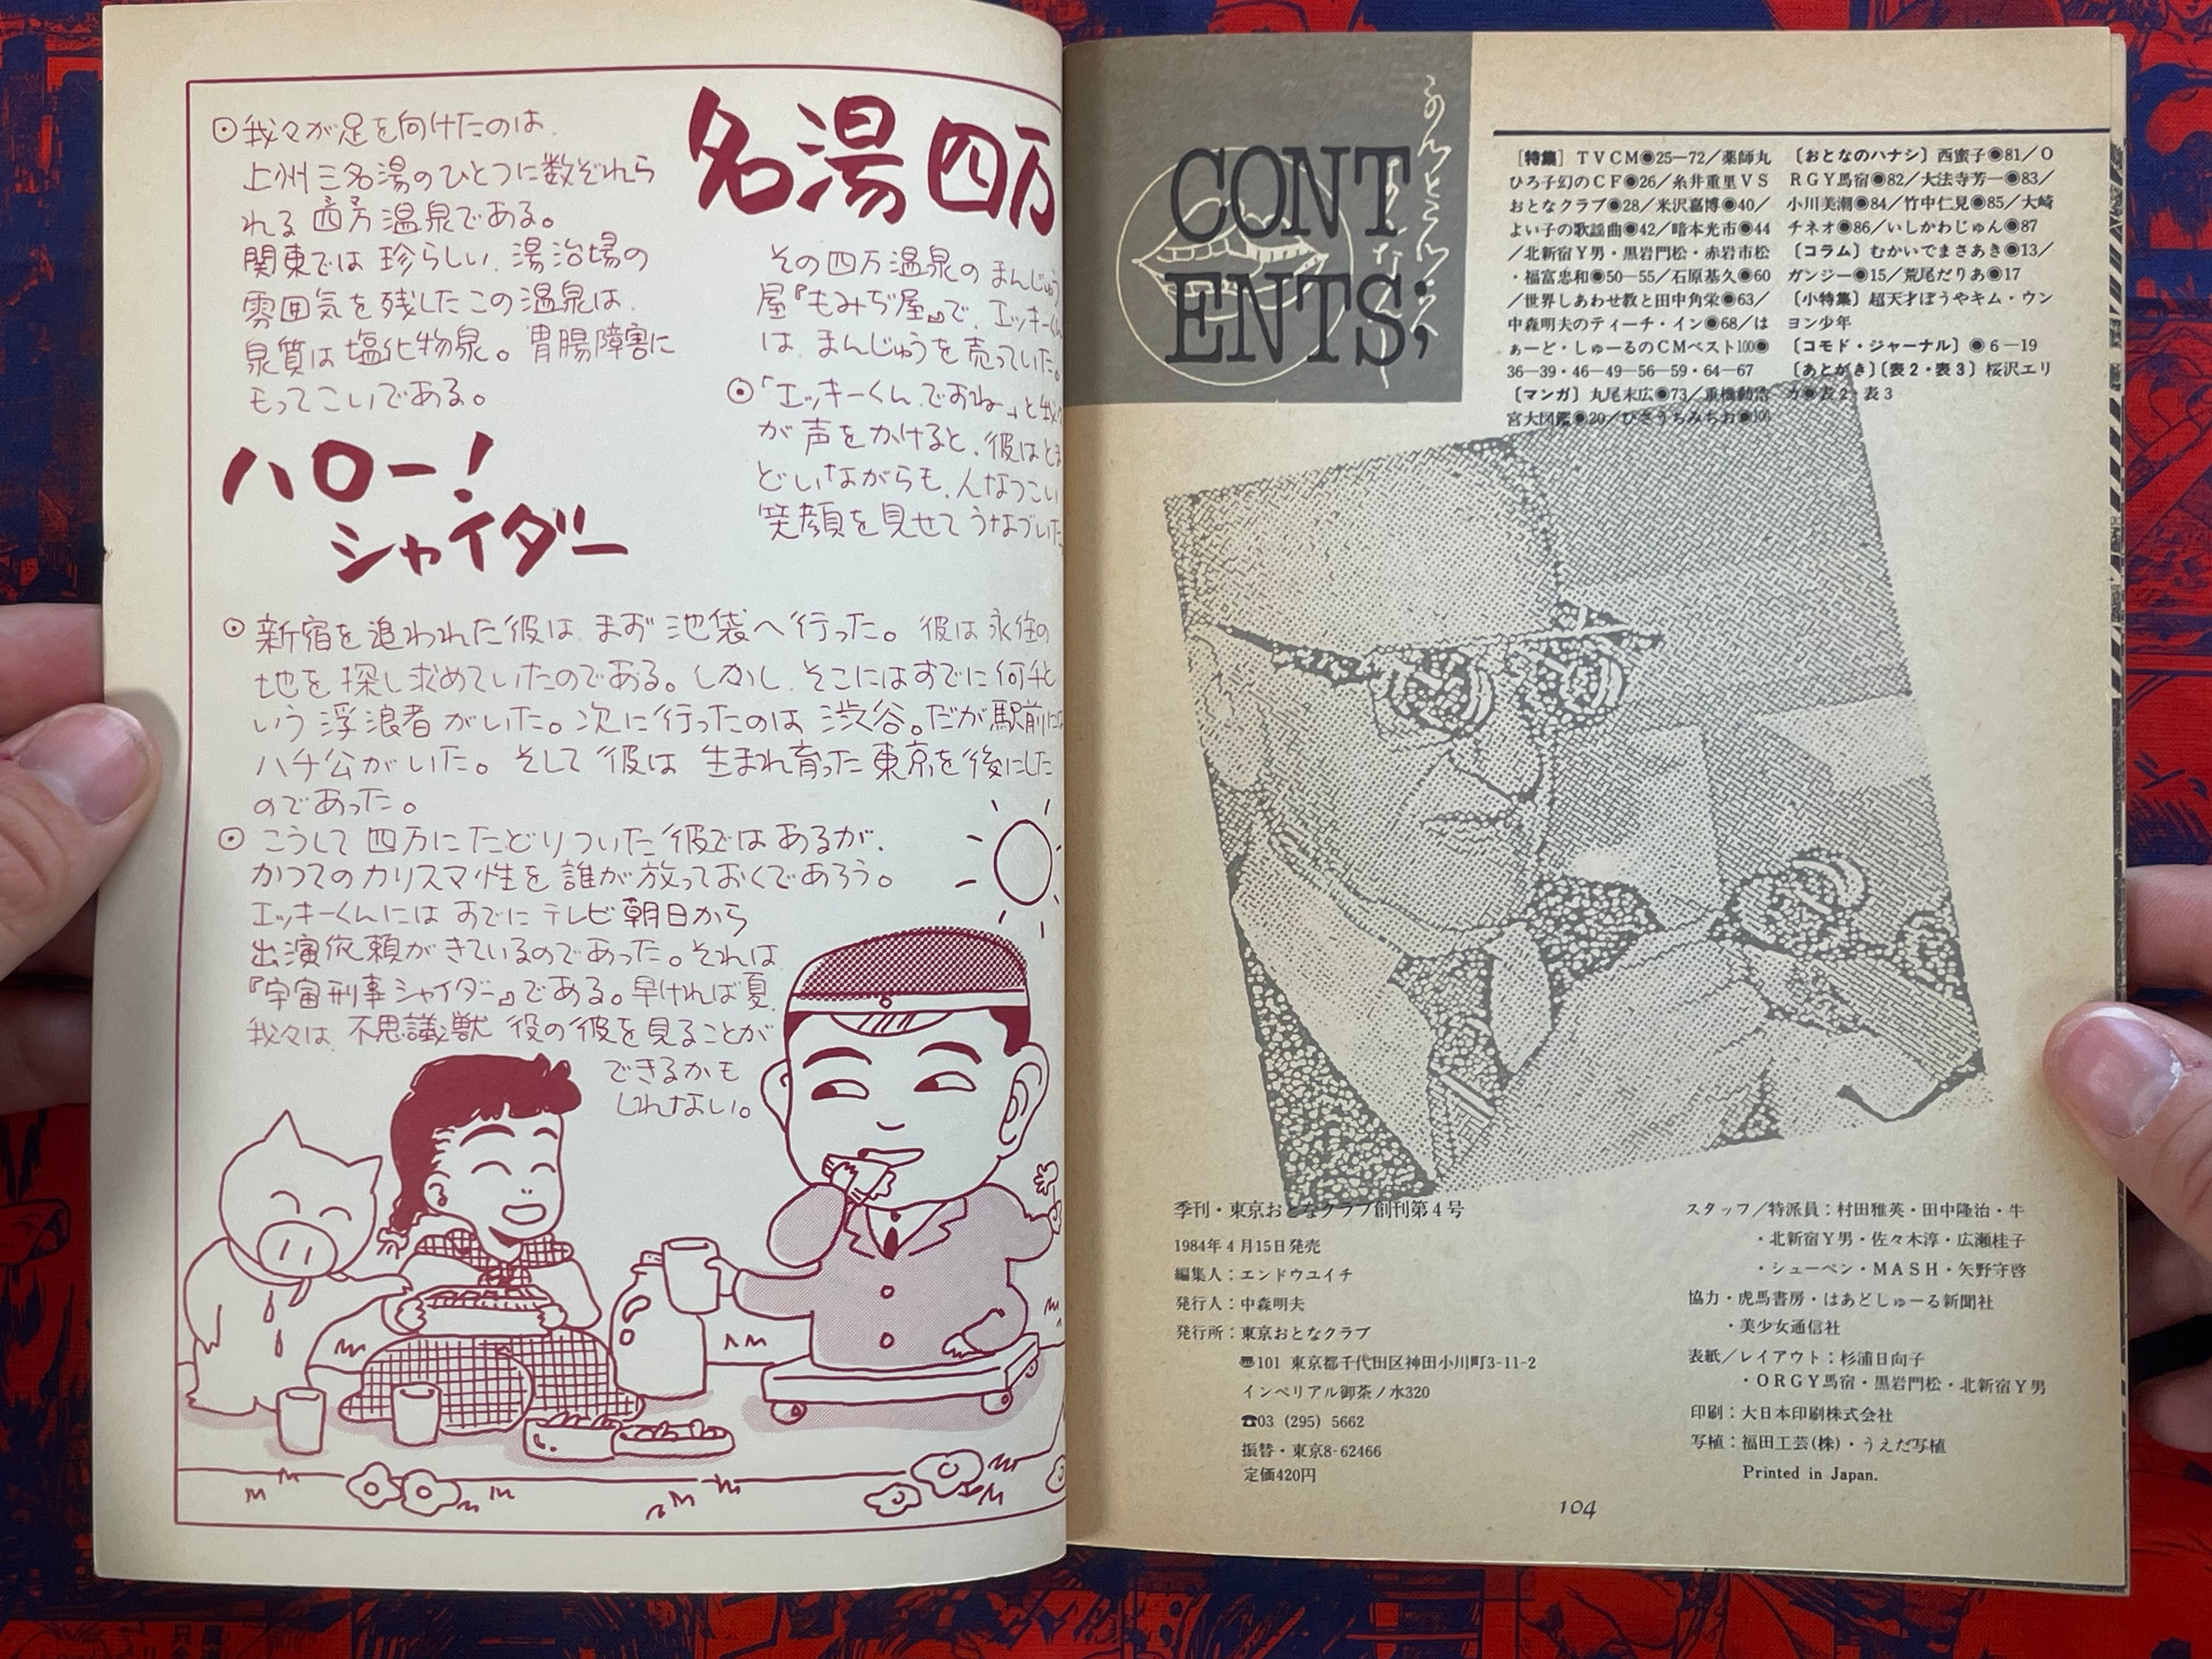 名湯 四万
⊙我々が足を向けたのは、
上州三名湯のひとつに数ぞれら
れる 四万温泉である。
関東では 珍らしい、湯治場の
雰囲気を残したこの温泉は、
泉質は塩化物泉。胃腸障害に
もってこいである。
その四万温泉のまんじゅう
屋『もみぢ屋』で、エッキーくん
は、まんじゅうを売っていた。
⊙「エッキーくんですね」と我々
が声をかけると、彼はとま
どいながらも、人なつこい
笑顔を見せてうなづいた
ハロー!
シャイダー
⊙新宿を追われた彼は、まず池袋へ行った。彼は永住の
地を探し求めていたのである。しかし、そこにはすでに何千と
いう浮浪者がいた。次に行ったのは渋谷。だが駅前には
ハチ公がいた。そして彼は生まれ育った東京を後にした
のであった。
⊙こうして四万にたどりついた彼ではあるが、
かつてのカリスマ性を誰が放っておくであろう。
エッキーくんには すでに テレビ朝日から
出演依頼がきているのであった。それは
『宇宙刑事シャイダー』である。早ければ夏、
我々は、不思議獣 役の彼を見ることが
できるかも
しれない。
CONT
ENTS;
［特集］TVCM◉25—72／薬師丸
ひろ子幻のCF◉26／糸井重里VS
おとなクラブ◉28／米沢嘉博◉40／
よい子の歌謡曲◉42／暗本光市◉44
／北新宿Y男・黒岩門松・赤岩市松
・福富忠和◉50—55／石原基久◉60
／世界しあわせ教と田中角栄◉63／
中森明夫のティーチ・イン◉68／は
ぁーど・しゅーるのCMベスト100◉
36—39・46—49—56—59・64—67
［マンガ］丸尾末広◉73／重機動浩
宮大図鑑◉20／ひさうちみちお◉100
〔おとなのハナシ〕西蜜子◉81／O
RGY馬宿◉82／大法寺芳一◉83／
小川美潮◉84／竹中仁見◉85／大崎
チネオ◉86／いしかわじゅん◉87
〔コラム〕むかいでまさあき◉13／
ガンジー◉15／荒尾だりあ◉17
〔小特集〕超天才ぼうやキム・ウン
ヨン少年
〔コモド・ジャーナル〕◉6—19
〔あとがき〕〔表2・表3〕桜沢エリ
カ◉表2・表3
季刊・東京おとなクラブ創刊第4号
1984年4月15日発売
編集人：エンドウユイチ
発行人：中森明夫
発行所：東京おとなクラブ
〠101 東京都千代田区神田小川町3-11-2
インペリアル御茶ノ水320
☎03 (295) 5662
振替・東京8-62466
定価420円
スタッフ／特派員：村田雅英・田中隆治・牛
・北新宿Y男・佐々木淳・広瀬桂子
・シューペン・MASH・矢野守啓
協力・虎馬書房・はあどしゅーる新聞社
・美少女通信社
表紙／レイアウト：杉浦日向子
・ORGY馬宿・黒岩門松・北新宿Y男
印刷：大日本印刷株式会社
写植：福田工芸(株)・うえだ写植
Printed in Japan.
104